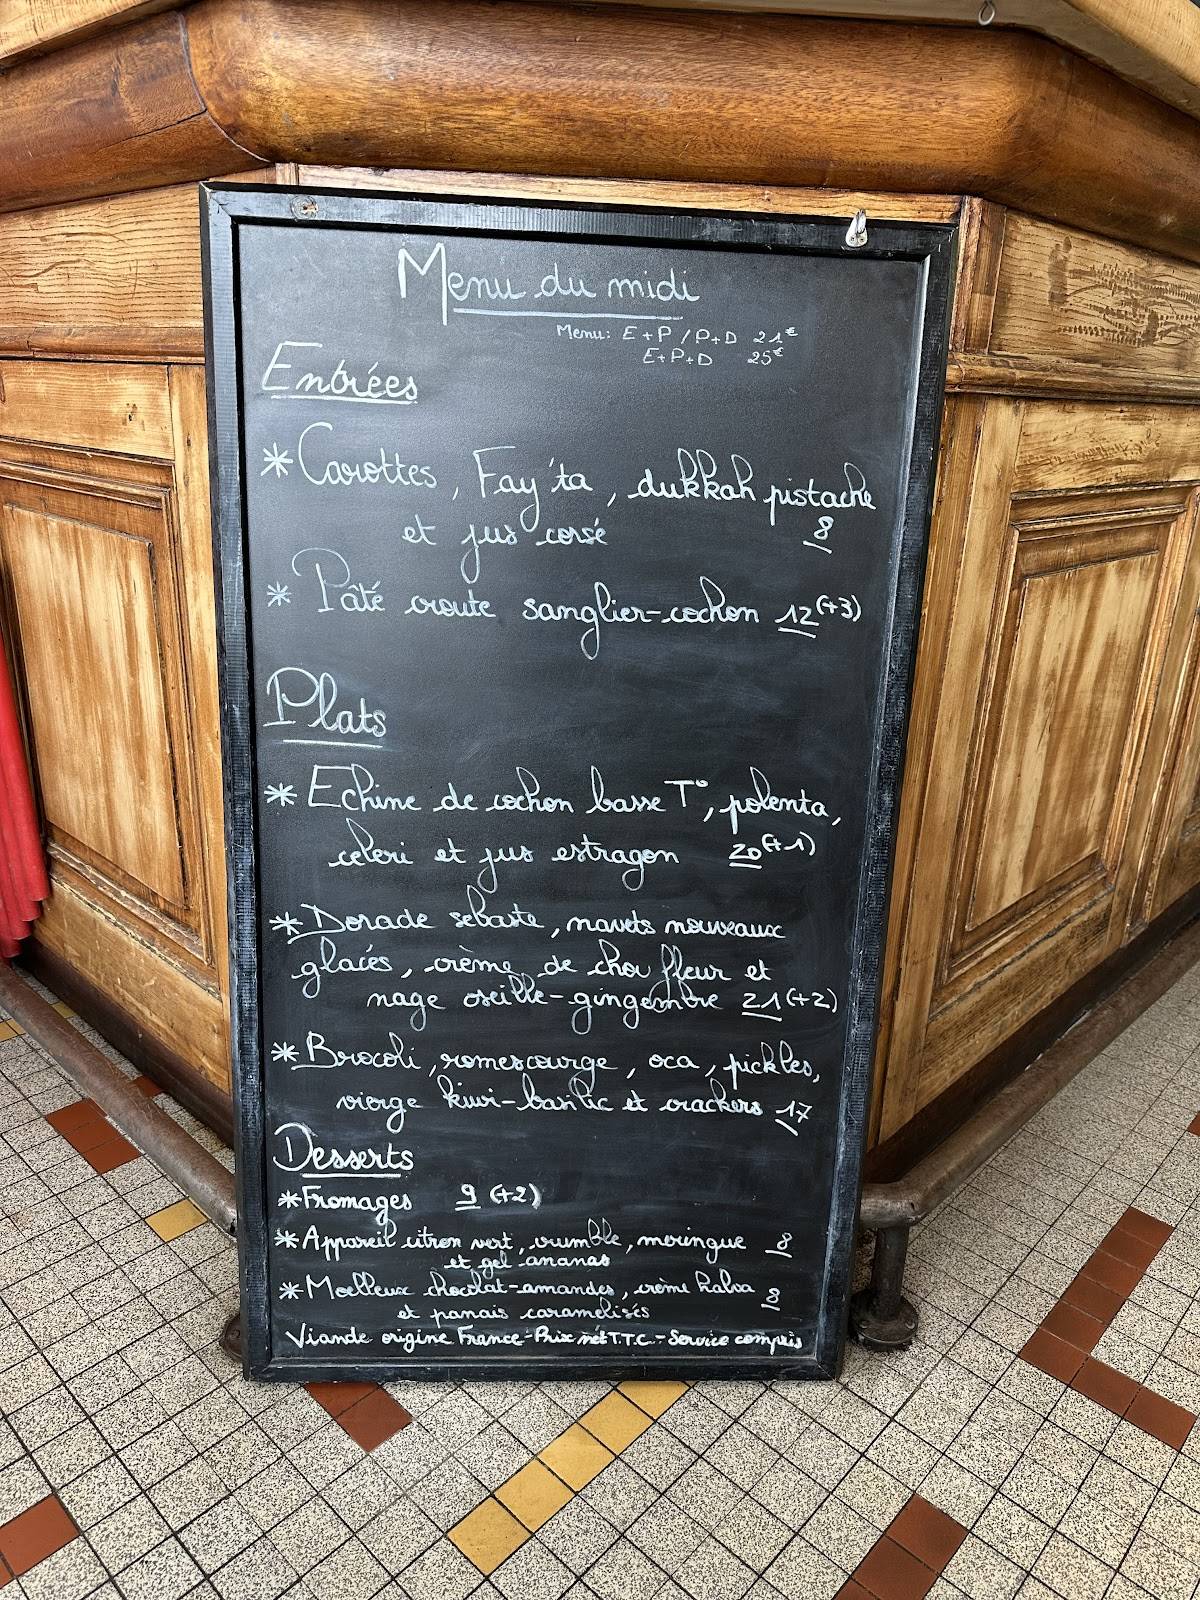 Menu du midi
Menu: E+P / P+D 21€
E+P+D 25€
Entrées
* Carottes, Fay'ta, dukkah pistache
et jus corsé 8
* Pâté croute sanglier-cochon 12 (+3)
Plats
* Echine de cochon basse T°, polenta,
céleri et jus estragon 20 (+1)
* Dorade sébaste, navets nouveaux
glacés, crème de chou fleur et
nage oseille-gingembre 21 (+2)
* Brocoli, romescourge, oca, pickles,
vierge kiwi-basilic et crackers 17
Desserts
* Fromages 9 (+2)
* Appareil citron vert, crumble, meringue 8
et gel ananas
* Moelleux chocolat-amandes, crème halva 8
et panais caramélisés
Viande origine France - Prix net T.T.C. - Service compris